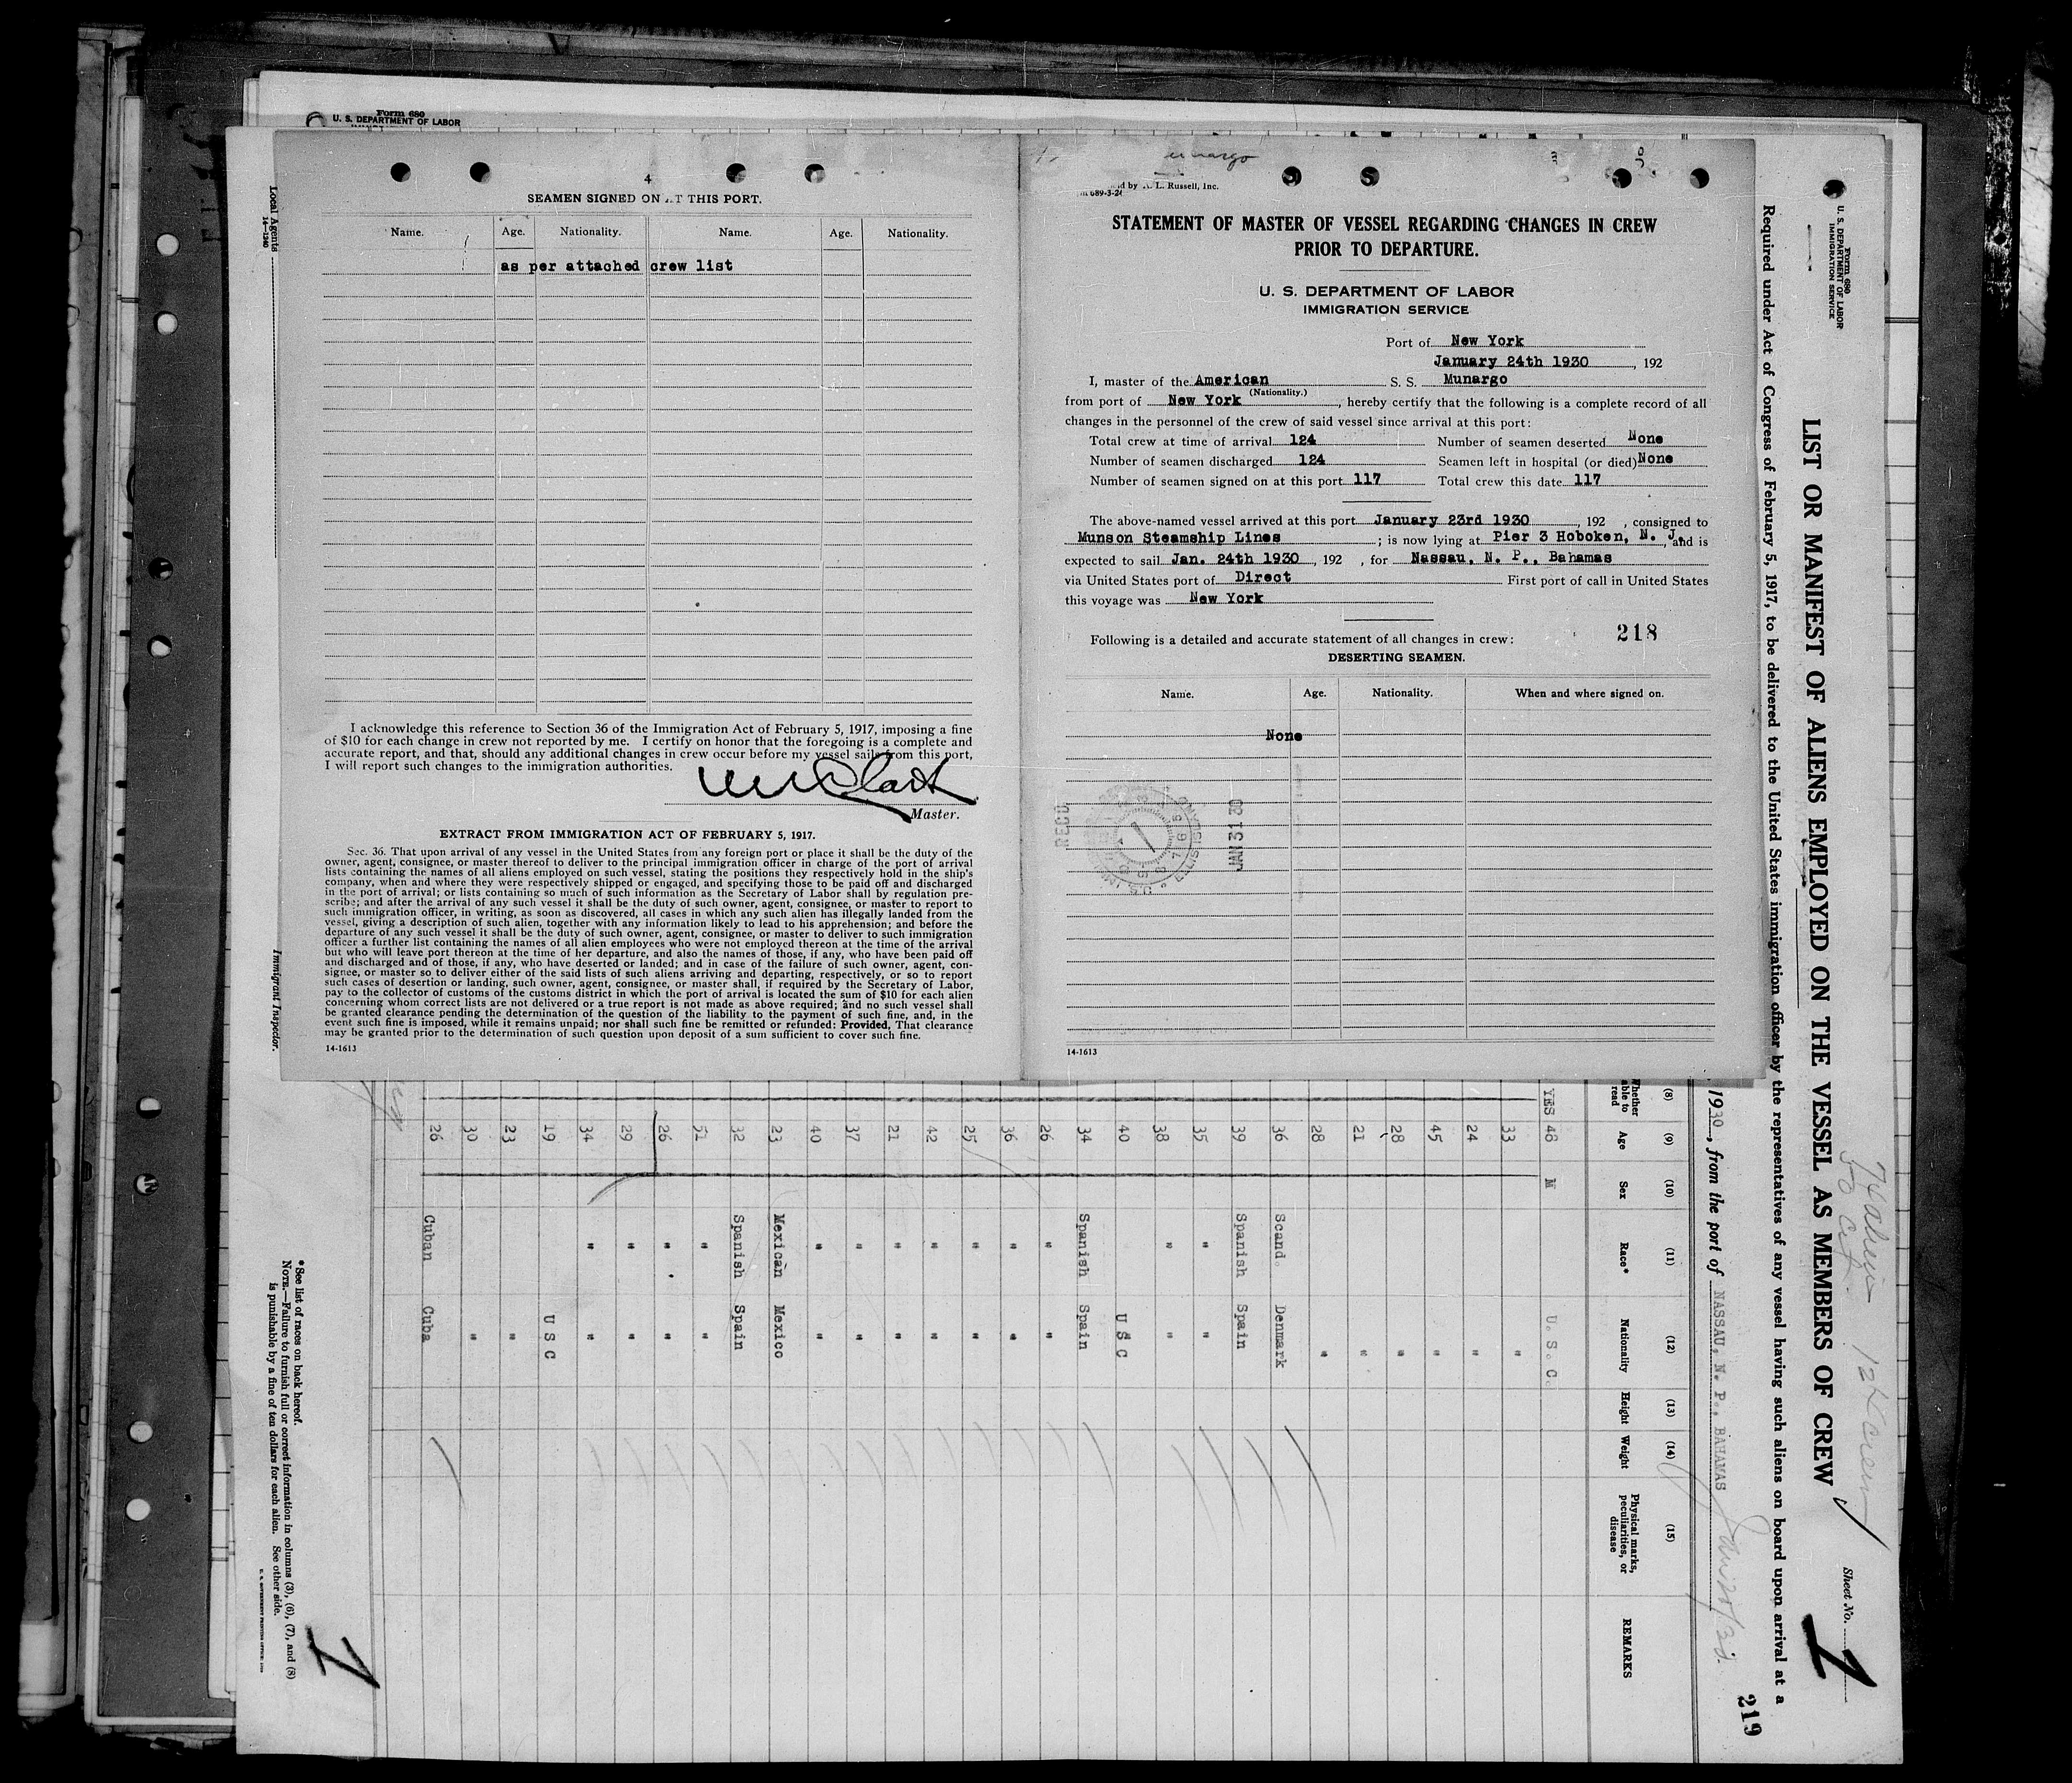 Form 680
U. S. DEPARTMENT OF LABOR
4
SEAMEN SIGNED ON AT THIS PORT.
Name. Age. Nationality. Name. Age. Nationality.
as per attached crew list
I acknowledge this reference to Section 36 of the Immigration Act of February 5, 1917, imposing a fine
of $10 for each change in crew not reported by me. I certify on honor that the foregoing is a complete and
accurate report, and that, should any additional changes in crew occur before my vessel sails from this port,
I will report such changes to the immigration authorities.
Clark
Master.
EXTRACT FROM IMMIGRATION ACT OF FEBRUARY 5, 1917.
Sec. 36. That upon arrival of any vessel in the United States from any foreign port or place it shall be the duty of the
owner, agent, consignee, or master thereof to deliver to the principal immigration officer in charge of the port of arrival
lists containing the names of all aliens employed on such vessel, stating the positions they respectively hold in the ship's
company, when and where they were respectively shipped or engaged, and specifying those to be paid off and discharged
in the port of arrival; or lists containing so much of such information as the Secretary of Labor shall by regulation pre-
scribe; and after the arrival of any such vessel it shall be the duty of such owner, agent, consignee, or master to report to
such immigration officer, in writing, as soon as discovered, all cases in which any such alien has illegally landed from the
vessel, giving a description of such alien, together with any information likely to lead to his apprehension; and before the
departure of any such vessel it shall be the duty of such owner, agent, consignee, or master to deliver to such immigration
officer a further list containing the names of all alien employees who were not employed thereon at the time of the arrival
but who will leave port thereon at the time of her departure, and also the names of those, if any, who have been paid off
and discharged and of those, if any, who have deserted or landed; and in case of the failure of such owner, agent, con-
signee, or master so to deliver either of the said lists of such aliens arriving and departing, respectively, or so to report
such cases of desertion or landing, such owner, agent, consignee, or master shall, if required by the Secretary of Labor,
pay to the collector of customs of the customs district in which the port of arrival is located the sum of $10 for each alien
concerning whom correct lists are not delivered or a true report is not made as above required; and no such vessel shall
be granted clearance pending the determination of the question of the liability to the payment of such fine, and, in the
event such fine is imposed, while it remains unpaid; nor shall such fine be remitted or refunded: Provided, That clearance
may be granted prior to the determination of such question upon deposit of a sum sufficient to cover such fine.
14-1613
Local Agents
14-1240
Immigrant Inspector.
L. Russell, Inc.
STATEMENT OF MASTER OF VESSEL REGARDING CHANGES IN CREW
PRIOR TO DEPARTURE.
U. S. DEPARTMENT OF LABOR
IMMIGRATION SERVICE
Port of New York
January 24th 1930, 192
I, master of the American S. S. Munargo
(Nationality.)
from port of New York, hereby certify that the following is a complete record of all
changes in the personnel of the crew of said vessel since arrival at this port:
Total crew at time of arrival 124 Number of seamen deserted None
Number of seamen discharged 124 Seamen left in hospital (or died) None
Number of seamen signed on at this port 117 Total crew this date 117
The above-named vessel arrived at this port January 23rd 1930, 192 , consigned to
Munson Steamship Lines; is now lying at Pier 3 Hoboken, N. J., and is
expected to sail Jan. 24th 1930, 192 , for Nassau, N. P., Bahamas
via United States port of Direct First port of call in United States
this voyage was New York
218
Following is a detailed and accurate statement of all changes in crew:
DESERTING SEAMEN.
Name. Age. Nationality. When and where signed on.
None
RECD
JAN 31 30
14-1613
Form 680
U. S. DEPARTMENT OF LABOR
IMMIGRATION SERVICE
LIST OR MANIFEST OF ALIENS EMPLOYED ON THE VESSEL AS MEMBERS OF CREW
Sheet No. 1
Required under Act of Congress of February 5, 1917, to be delivered to the United States immigration officer by the representatives of any vessel having such aliens on board upon arrival at a
1930, from the port of NASSAU, N. P., BAHAMAS
219
(8) (9) (10) (11) (12) (13) (14) (15)
Whether able to read Age Sex Race* Nationality Height Weight Physical marks, peculiarities, or disease REMARKS
YES 48 M U. S. C.
33 "
24 "
45 "
28 "
21 "
28 "
36 Scand. Denmark
39 Spanish Spain
35 " "
38 " "
40 U S C
34 Spanish Spain
26 " "
36 " "
25 " "
42 " "
21 " "
37 " "
40 " "
23 Mexican Mexico
32 Spanish Spain
51 " "
26 " "
29 " "
34 " "
19 U S C
23 "
30 "
26 Cuban Cuba
*See list of races on back hereof.
NOTE.—Failure to furnish full or correct information in columns (3), (6), (7), and (8)
is punishable by a fine of ten dollars for each alien. See other side.
1